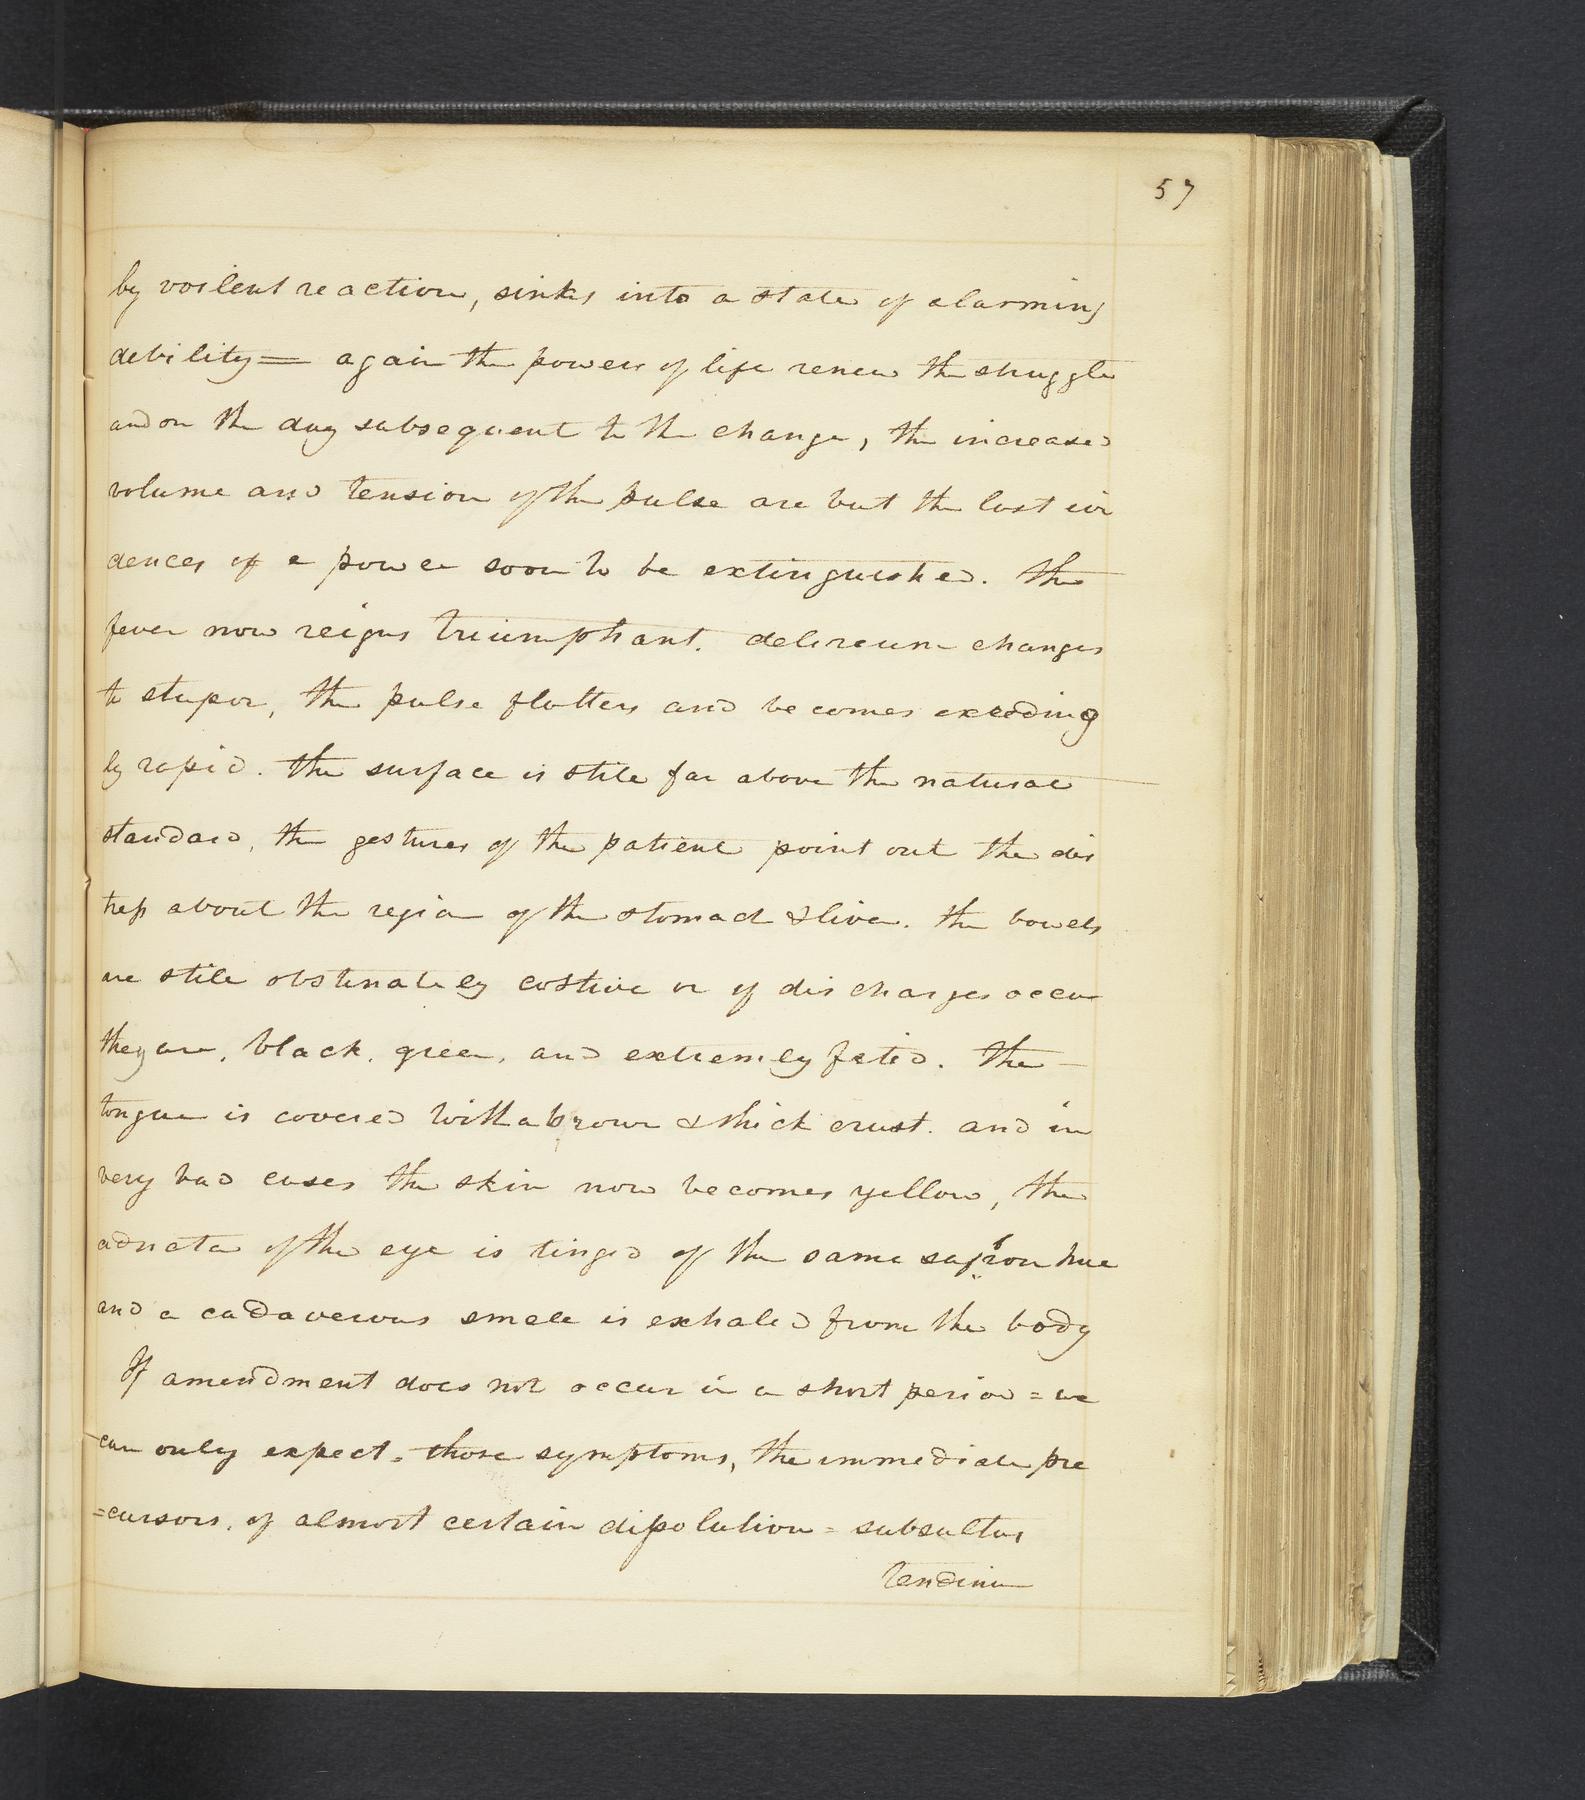 57
by voilent reaction, sinks into a state of alarming
debility = again the powers of life renew the struggle
and on the day subsequent to the change, the increased
volume and tension of the pulse are but the last evi
dences of a power soon to be extinguished. The
fever now reigns triumphant. delireum changes
to stupor, the pulse flutters and becomes exceeding
ly rapid. the surface is stile far above the natural
standard, the gestures of the patient point out the dis
tress about the region of the stomach & liver. the bowels
are stile obstinately costive or if discharges occur
they are, black, green, and extremely fetid. The
tongue is covered with a brown & thick crust. and in
very bad cases the skin now becomes yellow, the
adnata of the eye is tinged of the same saffron hue
and a cadaverous smell is exhaled from the body
If amendment does not occur in a short period = we
can only expect, those symptoms, the immediate pre
=cursors, of almost certain dissolution = subsultus
tendinum